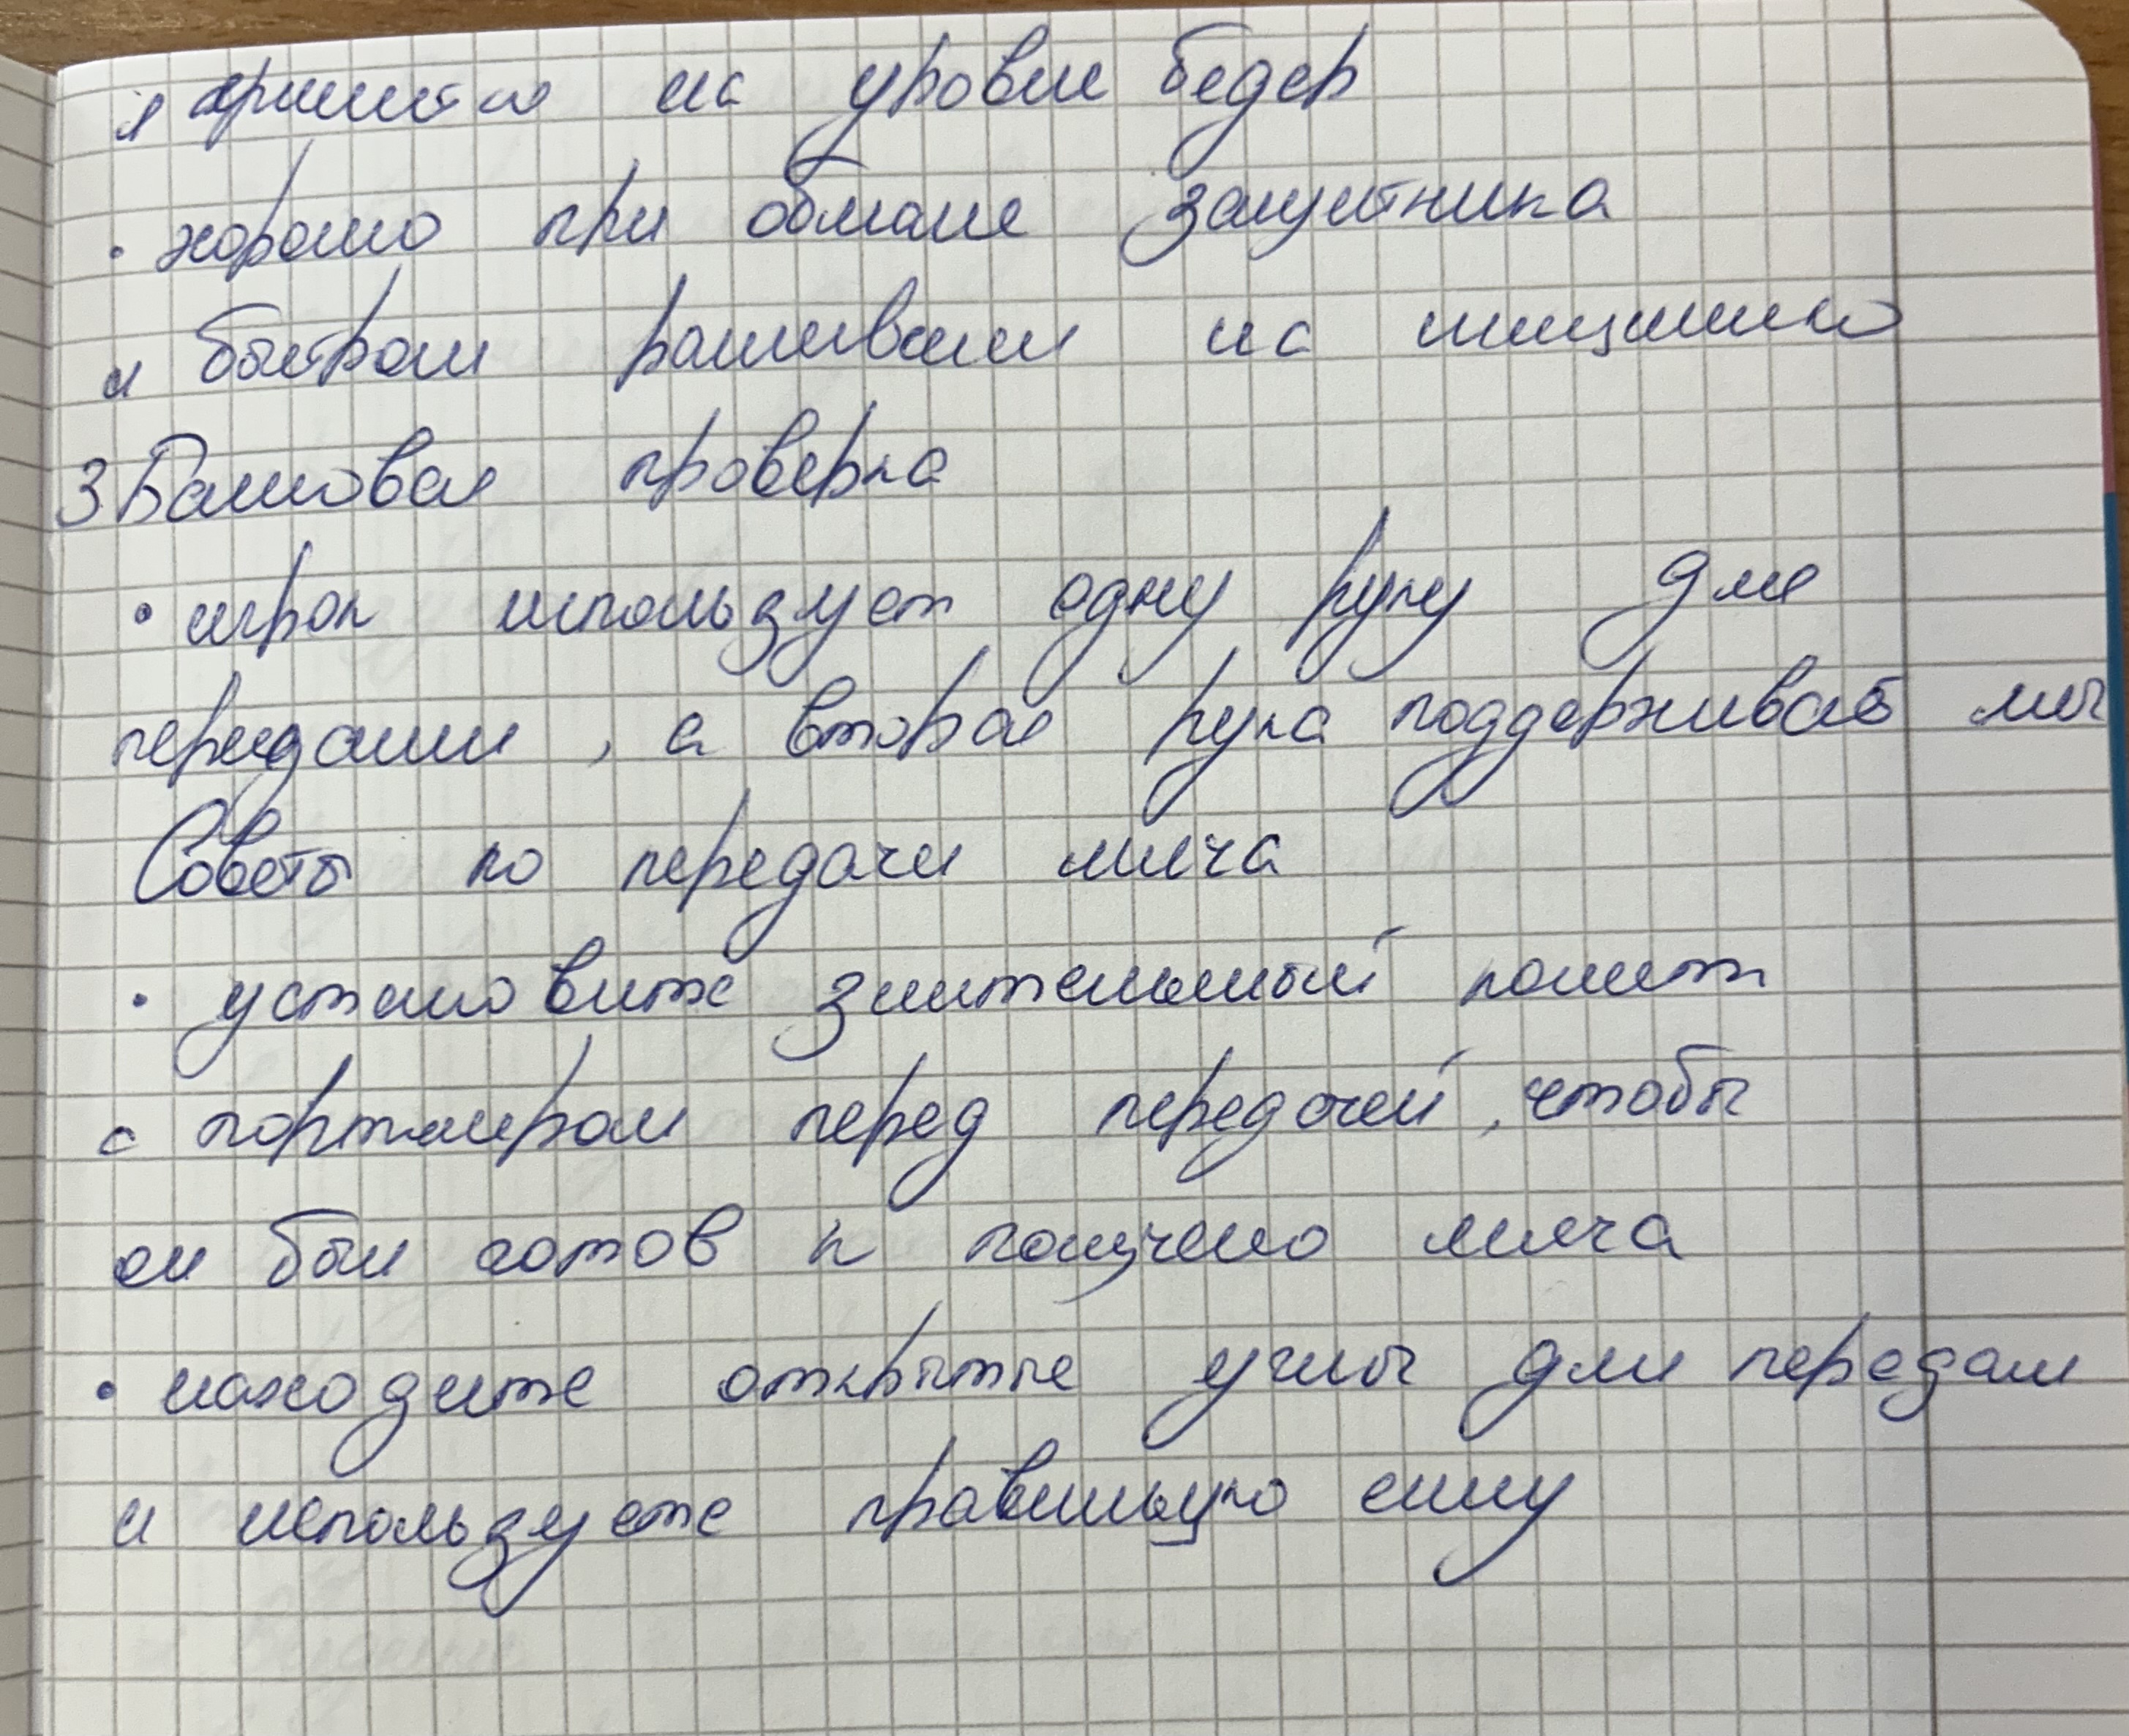 и хранится на уровне бедер
• хорошо при обмане защитника
и быстром на
3 Баловая проверка
• игрок использует одну руку для
передачи, а вторая рука поддерживает мяч
Советы по передачи мяча
• установите зрительный контакт
с портнером перед передачей, чтобы
он был готов к получено мяча
• находите открытые углы для передачи
и используете правильную силу